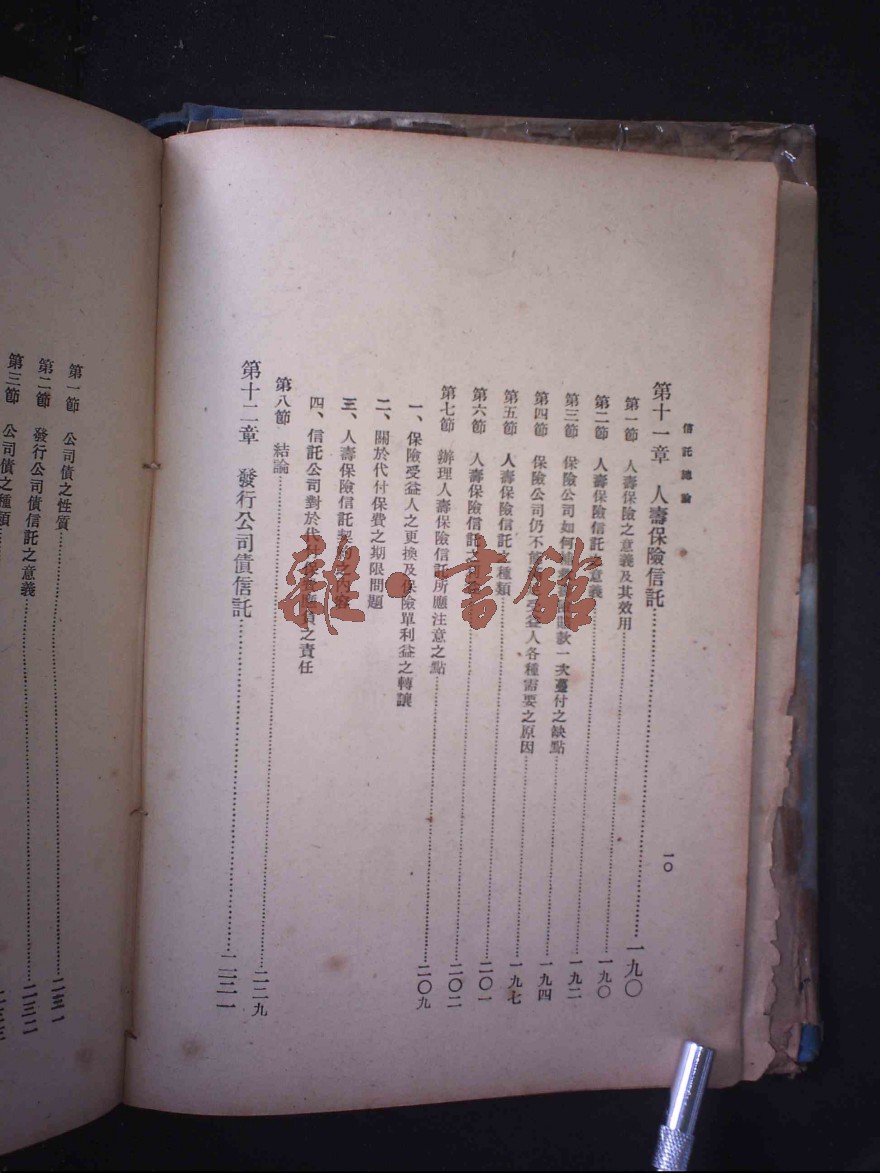 信託總論
一〇
第十一章 人壽保險信託 一九〇
第一節 人壽保險之意義及其效用 一九〇
第二節 人壽保險信託 意義 一九二
第三節 保險公司如何 款一次 付之缺點 一九四
第四節 保險公司仍不能 受益人各種需要之原因 一九七
第五節 人壽保險信託之種類 二〇一
第六節 人壽保險信託之 二〇二
第七節 辦理人壽保險信託所應注意之點 二〇九
一、保險受益人之更換及保險單利益之轉讓
二、關於代付保費之期限問題
三、人壽保險信託契約之內容
四、信託公司對於代付保 應負之責任
第八節 結論 二二九
第十二章 發行公司債信託
第一節 公司債之性質 二三一
第二節 發行公司債信託之意義 二三二
第三節 公司債之種類 二三三
雜·書館